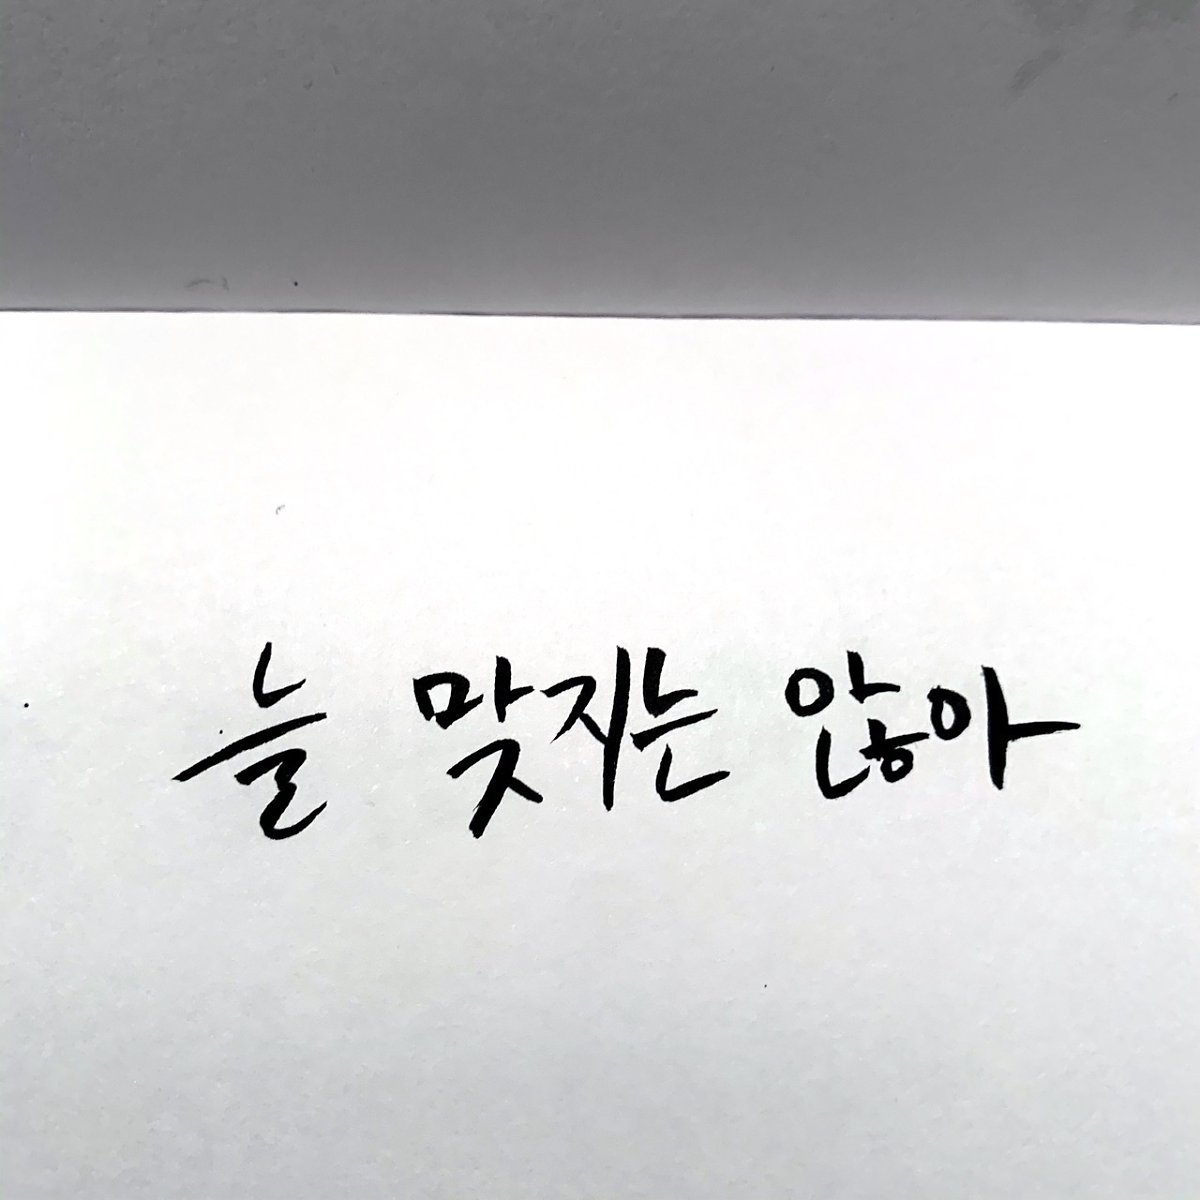 늘 맞지는 않아